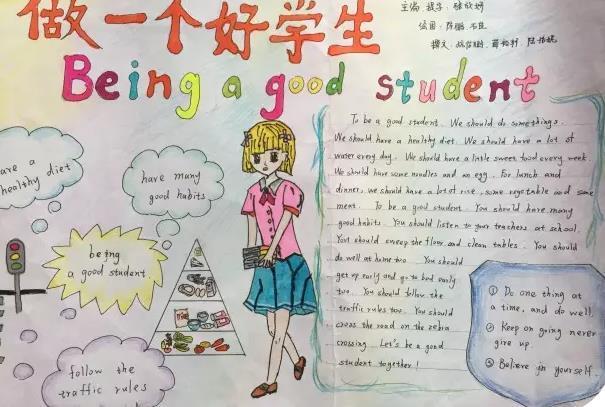 做一个好学生
主编:
绘图:
撰文:
Being a good student
have a
healthy diet
have many
good habits
being
a good student
follow the
traffic rules
To be a good student. We should do somethings.
We should have a healthy diet. We should have a lot of
water every day. We should have a little sweet food every week.
We should have some noodles and an egg. For lunch and
dinner, we should have a lot of rice, some vegetable and some
meat. To be a good student. You should have many
good habits. You should listen to your teachers at school.
You should sweep the floor and clean tables. You should
do well at home too. You should
get up early and go to bed early
too. You should follow the
traffic rules too. You should
cross the road on the zebra
crossing. Let's be a good
student together!
① Do one thing at
a time, and do well.
② Keep on going never
give up.
③ Believe in yourself